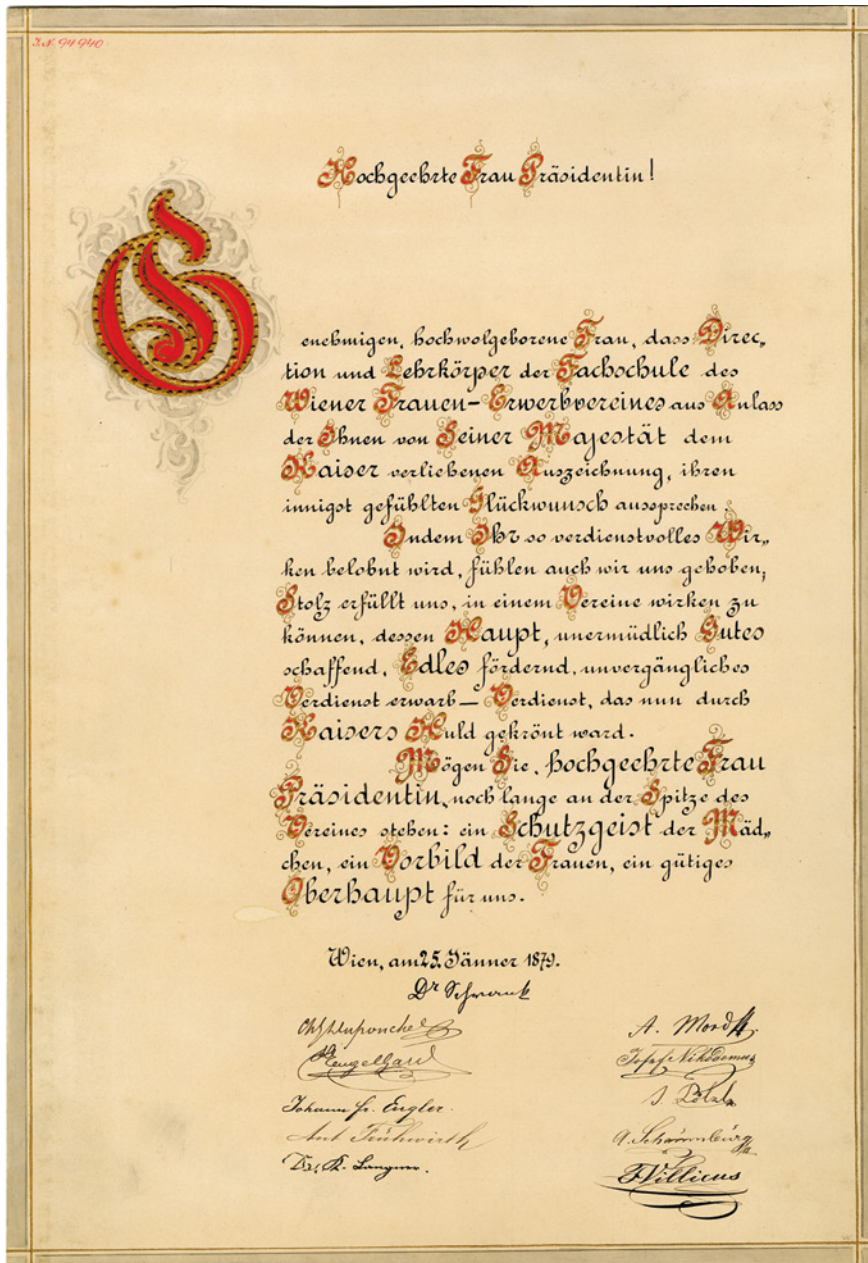 I.N. 94 940
Hochgeehrte Frau Präsidentin!
Genehmigen, hochwolgeborene Frau, dass Direc„
tion und Lehrkörper der Fachschule des
Wiener Frauen-Erwerbvereines aus Anlass
der Ihnen von Seiner Majestät dem
Kaiser verliehenen Auszeichnung, ihren
innigst gefühlten Glückwunsch aussprechen.
Indem Ihr so verdienstvolles Wir„
ken belohnt wird, fühlen auch wir uns gehoben;
Stolz erfüllt uns, in einem Vereine wirken zu
können, dessen Haupt, unermüdlich Gutes
schaffend, Edles fördernd, unvergängliches
Verdienst erwarb — Verdienst, das nun durch
Kaisers Huld gekrönt ward.
Mögen Sie, hochgeehrte Frau
Präsidentin, noch lange an der Spitze des
Vereines stehen: ein Schutzgeist der Mäd„
chen, ein Vorbild der Frauen, ein gütiges
Oberhaupt für uns.
Wien, am 25. Jänner 1879.
Dr Schrank
A.
Engelhard
Josef Nikodemus
Johann Fr. Engler.
Ant Frühwirth
Dr. K. Langner.
Villicus